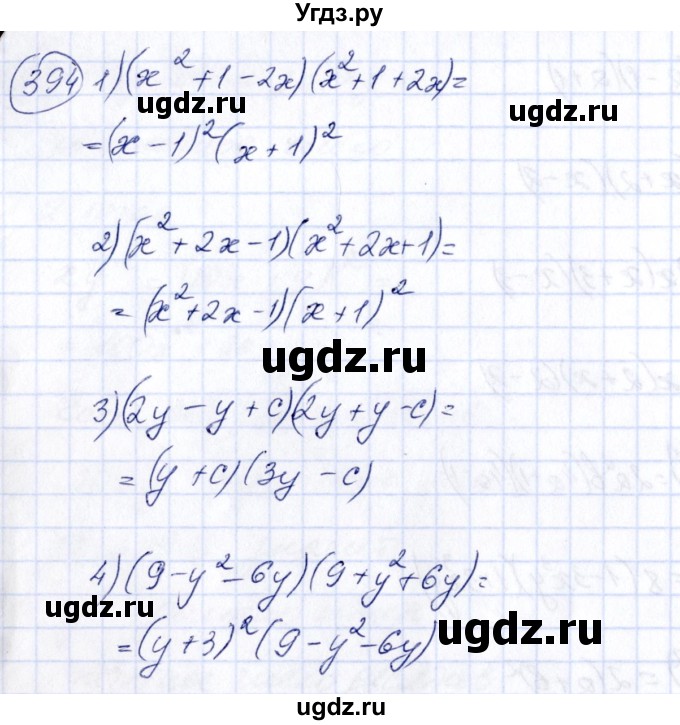 Угдз.ру
394 1) (x² + 1 - 2x)(x² + 1 + 2x) =
ugdz.ru ugdz.ru
= (x - 1)² (x + 1)²
2) (x² + 2x - 1)(x² + 2x + 1) =
= (x² + 2x - 1)(x + 1)²
ugdz.ru
3) (2y - y + c)(2y + y - c) =
= (y + c)(3y - c)
4) (9 - y² - 6y)(9 + y² + 6y) =
ugdz.ru ugdz.ru
= (y + 3)² (9 - y² - 6y)
ugdz.ru